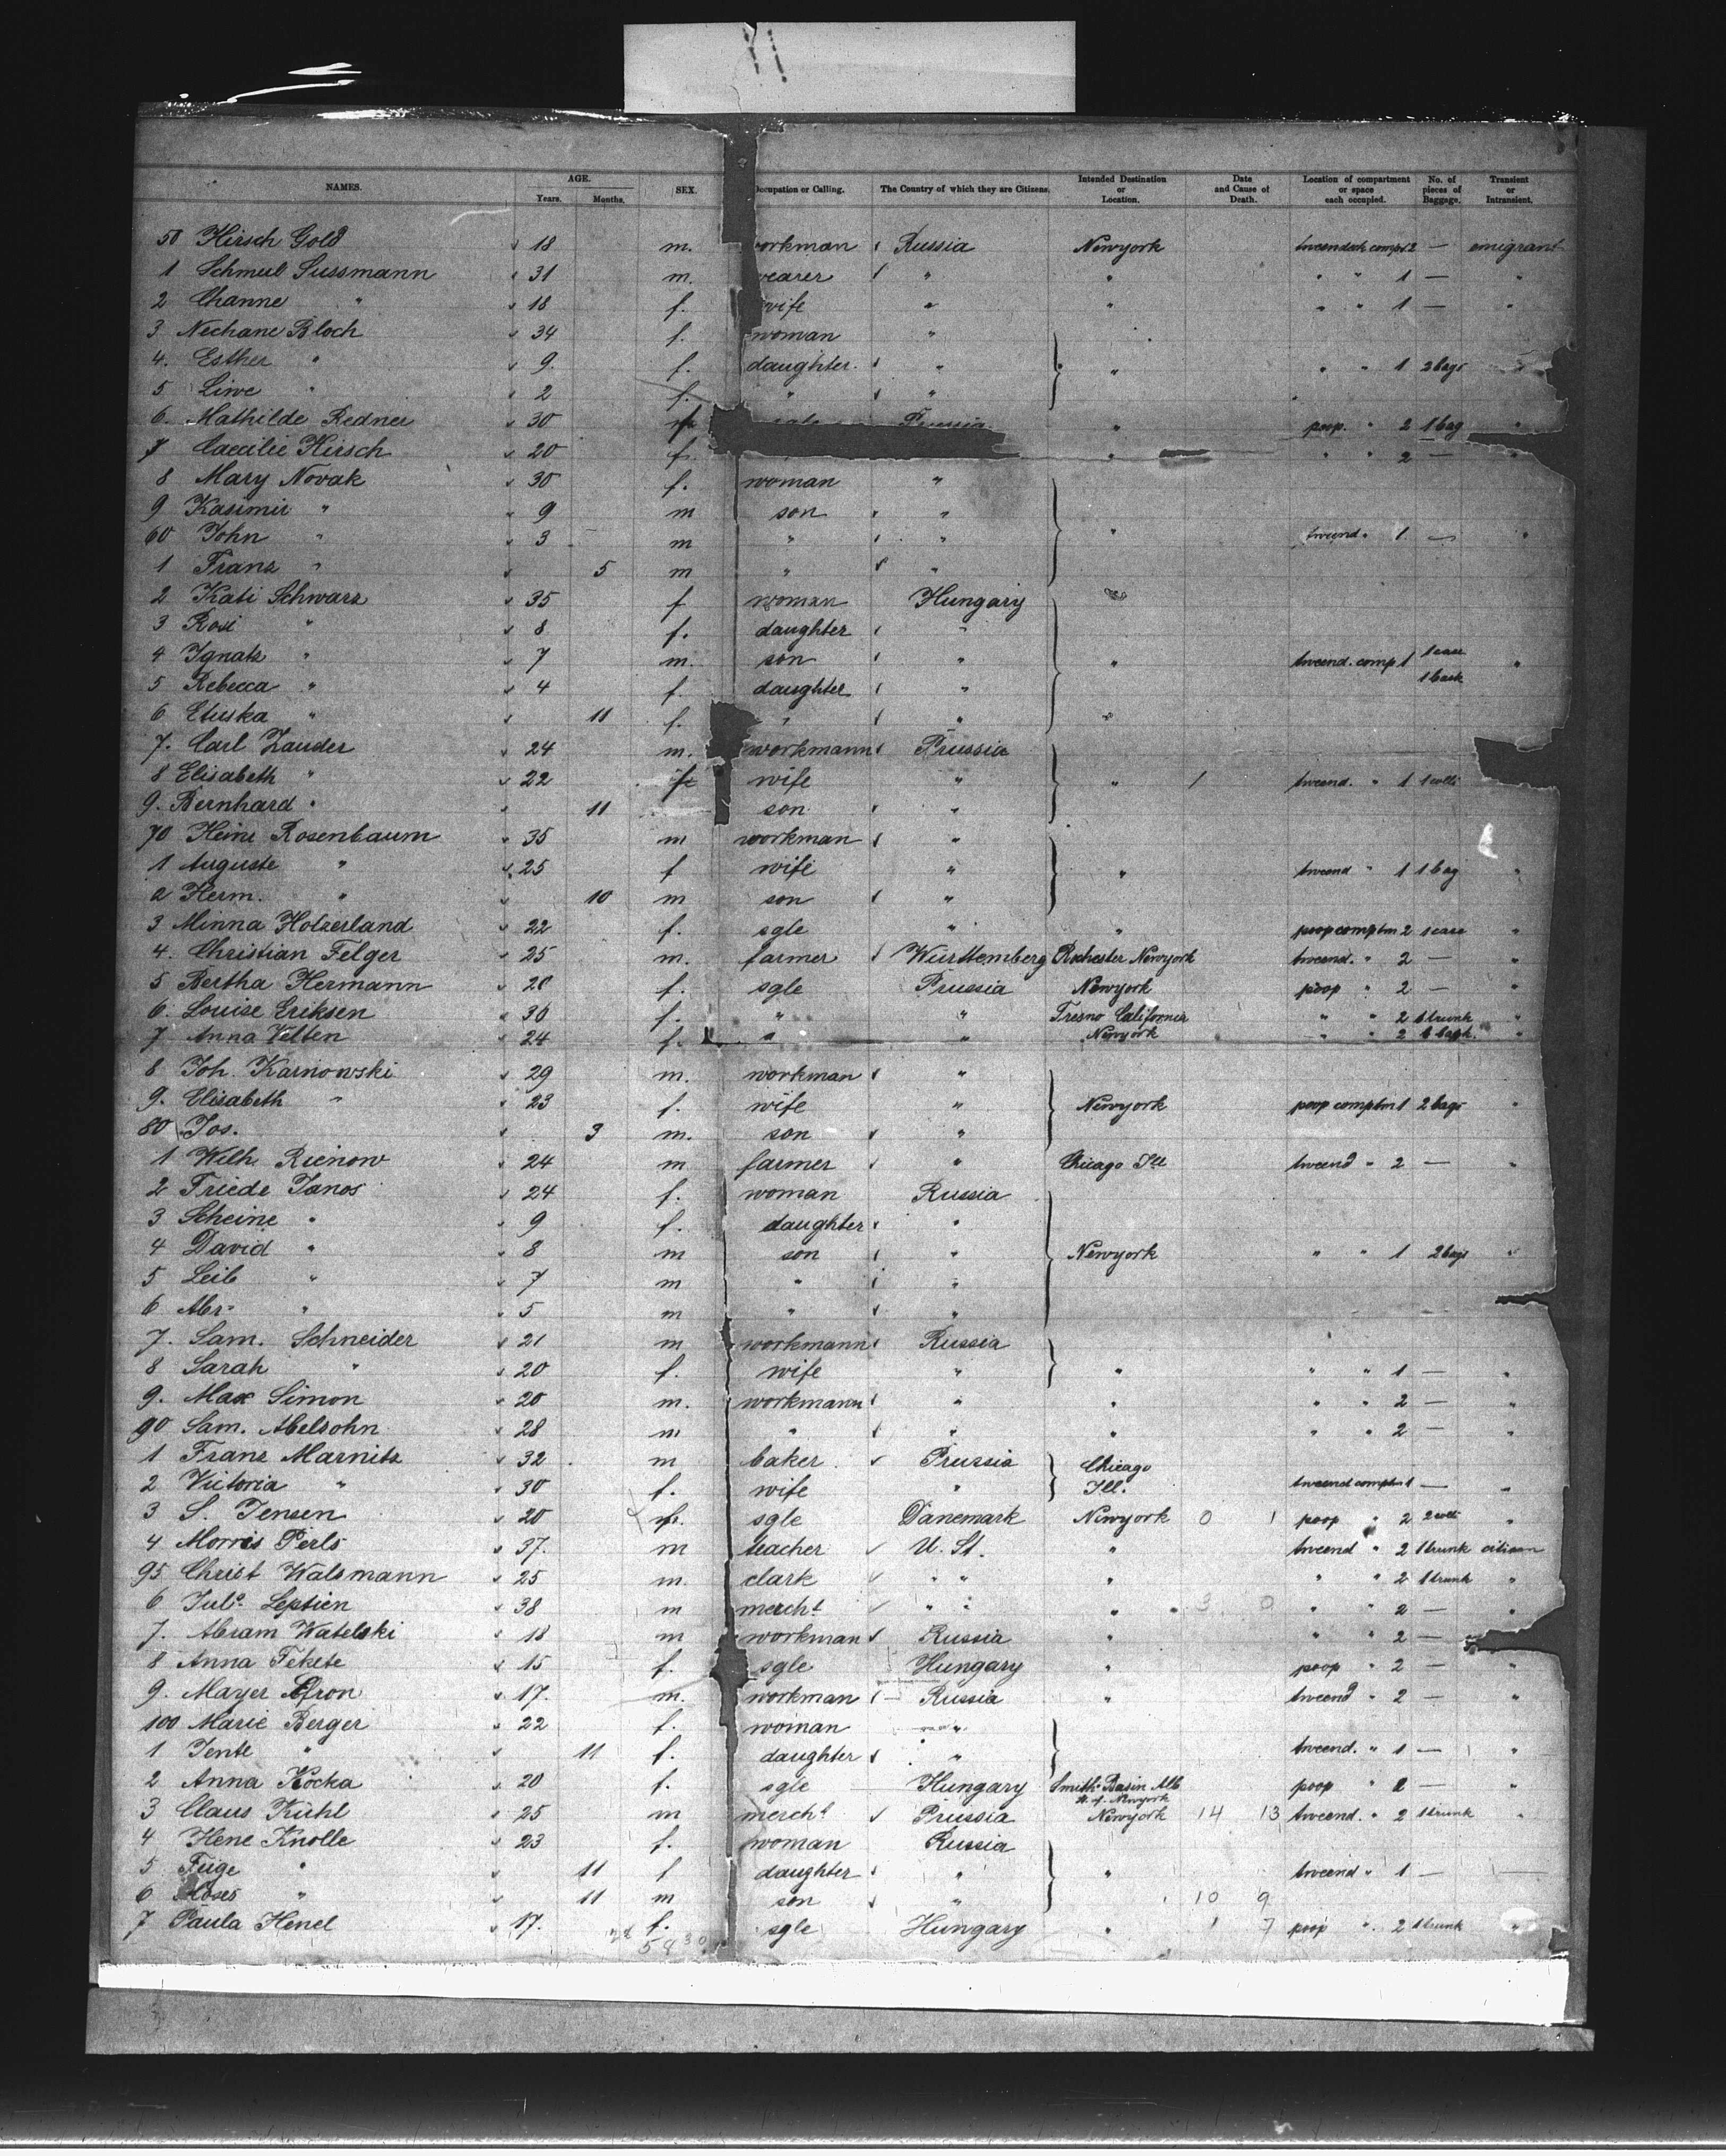 NAMES. AGE. Years. Months. SEX. Occupation or Calling. The Country of which they are Citizens. Intended Destination or Location. Date and Cause of Death. Location of compartment or space each occupied. No. of pieces of Baggage. Transient or Intransient.
50 Hirsch Gold " 18 m. workman Russia Newyork tweendek compt 2 — emigrant
1 Schmul Sussmann " 31 m. " " " " 1 — "
2 Channe " " 18 f. wife " " " " 1 — "
3 Nechane Bloch " 34 f. woman "
4. Esther " " 9. f. daughter " " " " 1 2 bags "
5 Liwe " " 2 f. " "
6. Mathilde Redner " 30 f. sgle Prussia " poop. " 2 1 bag "
7 Caecilie Hirsch " 20 f. " " " 2 — "
8 Mary Novak " 30 f. woman "
9 Kasimir " " 9 m son "
60 John " " 3 m " " " tweend. " 1 — "
1 Franz " " 5 m " "
2 Kati Schwarz " 35 f woman Hungary
3 Rosi " " 8 f. daughter "
4 Ignatz " " 7 m. son " " tweend. comp 1 1 case "
5 Rebecca " " 4 f. daughter " 1 bask
6 Etuska " " 11 f. " "
7. Carl Zauder " 24 m. workmann Prussia
8 Elisabeth " " 22 f wife " " 1 tweend. " 1 1 colli
9. Bernhard " " 11 son "
70 Heinr Rosenbaum " 35 m workman "
1 Auguste " " 25 f wife " " tweend " 1 1 bag "
2 Herm. " " 10 m son "
3 Minna Holzerland " 22 f. sgle " " poop comptm 2 1 case "
4. Christian Felger " 25 m. farmer Württemberg Rochester Newyork tweend. " 2 — "
5 Bertha Hermann " 20 f. sgle Prussia Newyork poop " 2 — "
6. Louise Eriksen " 36 f. " " Fresno California " " 2 1 trunk "
7 Anna Velten " 24 f. " " Newyork " " 2 1 bask. "
8 Joh. Karnowski " 29 m. workman "
9. Elisabeth " " 23 f. wife " Newyork poop comptm 1 2 bags "
80 Jos. " 3 m. son "
1 Wilh. Rienow " 24 m farmer " Chicago Ill tweend " 2 — "
2 Friede Janos " 24 f. woman Russia
3 Scheine " " 9 f. daughter "
4 David " " 8 m son " Newyork " " 1 2 bags "
5 Leib " " 7 m " "
6 Abr. " " 5 m " "
7. Sam. Schneider " 21 m workmann Russia
8 Sarah " " 20 f. wife " " " " 1 — "
9. Max Simon " 20 m. workmann " " " " 2 — "
90 Sam. Abelsohn " 28 m " " " " " 2 — "
1 Franz Marnitz " 32 m baker Prussia Chicago
2 Victoria " " 30 f. wife " Ill. tweend comptm 1 — "
3 S. Jensen " 20 sgle Danemark Newyork 0 1 poop " 2 2 colli "
4 Morris Perls " 37. m teacher U. St. " tweend " 2 1 trunk citizen
95 Christ Walsmann " 25 m. clark " " " " " 2 1 trunk "
6 Juls. Leptien " 38 m mercht " " " 3 0 " " 2 — "
7. Abram Watelski " 18 m workman Russia " " " 2 —
8 Anna Fekete " 15 f. sgle Hungary " poop " 2 — "
9. Mayer Efron " 17. m. workman Russia " tweend " 2 — "
100 Marie Berger " 22 f. woman "
1 Jente " " 11 f. daughter " tweend. " 1 — "
2 Anna Kocka " 20 f. sgle Hungary Smiths Basin Alb poop " 2 — "
3 Claus Kühl " 25 m mercht Prussia Newyork 14 13 tweend. " 2 1 trunk "
4 Hene Knolle " 23 f. woman Russia
5 Feige " " 11 f daughter " " tweend " 1 —
6 Moses " " 11 m son " 10 9
7 Paula Henel " 17. f. sgle Hungary " 1 7 poop " 2 1 trunk "